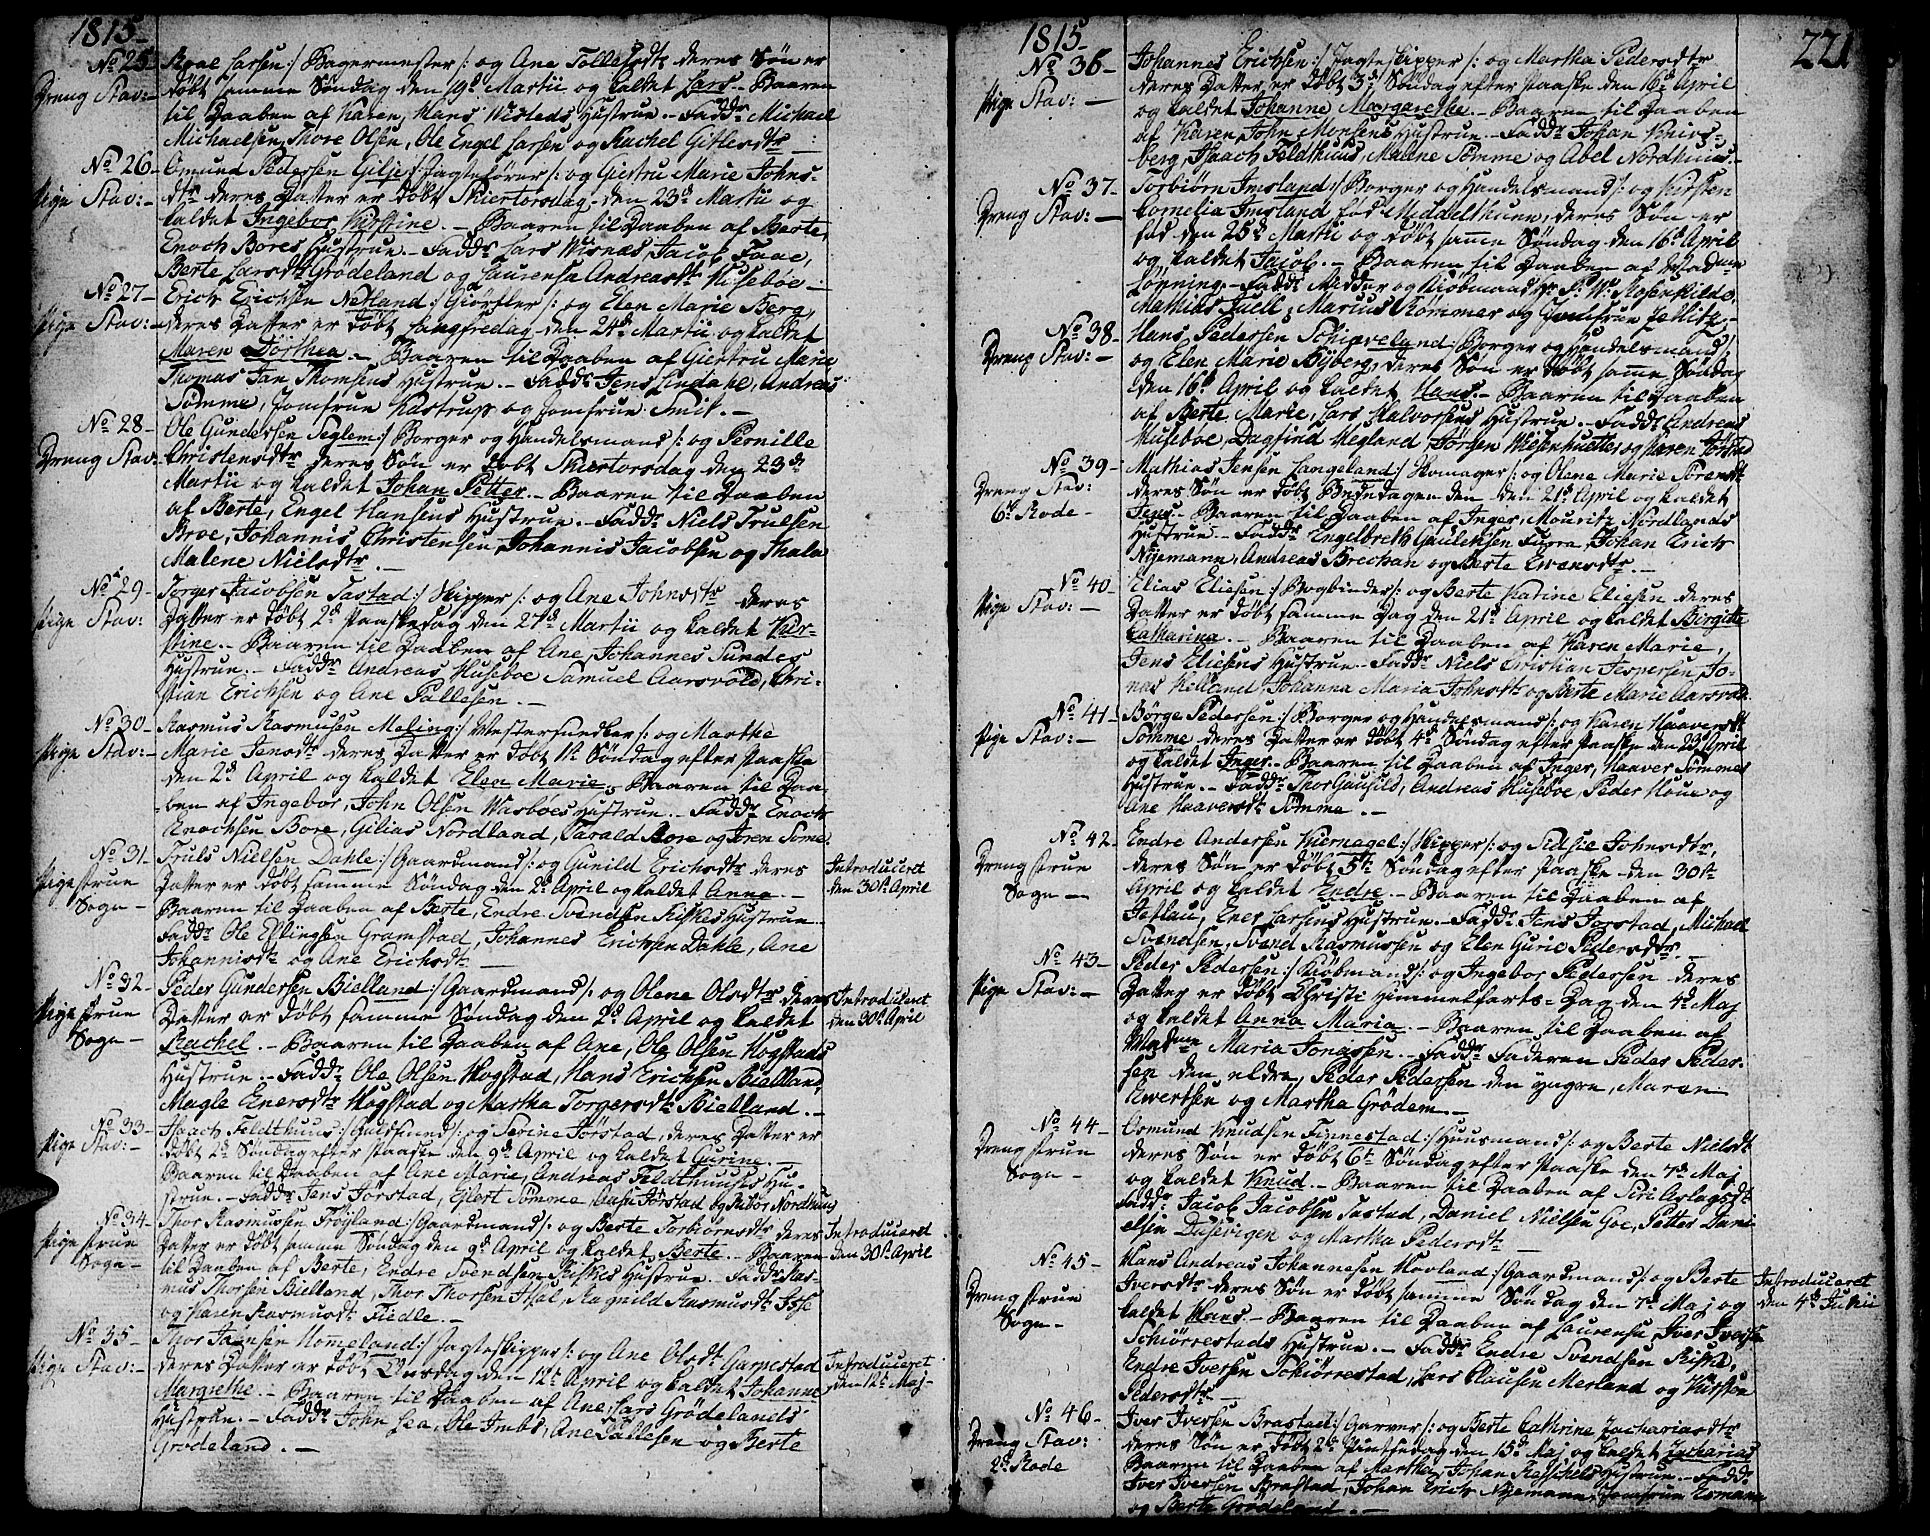 1815
No 25
Dreng Stav:
Roal Larsen /: Bagermester :/ og Ane Tollefsdtr deres Søn er
døbt samme Søndag den 19d Martii og kaldet Lars. - Baaren
til Daaben af Karen, Hans Wisteds Hustrue. - Faddr Michael
Michaelsen, Thore Olsen, Ole Engel Larsen og Rachel Gitlesdtr
No 26
Pige Stav:
Omund Pedersen Gilje /: Jagtefører :/ og Giertru Marie Johns-
dtr deres Datter er døbt Skiertorsdag den 23d Martii og
kaldet Ingebor Kirstine. - Baaren til Daaben af Berte,
Enoch Bores Hustrue. - Faddr Lars Wisnæs, Jacob Faae,
Berte Larsdtr Grödeland og Laurensa Andreasdtr Husebøe
No 27
Pige Stav:
Erich Erichsen Netland /: Giörtler :/ og Elen Marie Berg,
deres Datter er døbt Langfredag den 24d Martii og kaldet
Maren Dorthea. - Baaren til Daaben af Giertru Marie
Thomas Jan Thomsens Hustrue. - Faddr Jens Lindahl, Andreas
Sømme, Jomfrue Kastrup og Jomfrue Smit. -
No 28
Dreng Stav:
Ole Gundersen Seglem /: Borger og Handelsmand :/ og Pernille
Christensdtr deres Søn er døbt Skiertorsdag den 23d
Martii og kaldet Johan Petter. - Baaren til Daaben
af Berte, Engel Hansens Hustrue. - Faddr Niels Trulsen
Broe, Johannis Christensen, Johannis Jacobsen og Thala
Malene Nielsdtr. -
No 29
Pige Stav:
Torger Jacobsen Tastad /: Skipper :/ og Ane Johnsdtr deres
Datter er døbt 2d Paaskedag den 27d Martii og kaldet Kir-
stine. - Baaren til Daaben af Ane, Johannes Sundes
Hustrue. - Faddr Andreas Huseboe Samuel Aarsvold, Chri-
stian Erichsen og Ane Tallesen. -
No 30
Pige Stav:
Rasmus Rasmusen Meling /: :/ og Marthe
Marie Jensdtr deres Datter er døbt 1t Søndag efter Paaske
den 2d April og kaldet Elen Marie. Baaren til Daa-
ben af Ingebor, John Olsen Wasboes Hustrue. Faddr Enoch
Enochsen Bore, Gilias Nordland, Tarald Bore og Iren Some
No 31
Pige Frue
Sogn
Truls Nielsen Dahle /: Gaardmand :/ og Gunild Erichsdtr deres
Datter er døbt samme Søndag den 2d April og kaldet Anna
Baaren til Daaben af Berte, Endre Svendsen Riskes Hustrue.
Faddr Ole Eslingsen Gramstad, Johannes Erichsen Dahle, Ane
Johannisdtr og Ane Erichsdtr
Introduceret
den 30te April
No 32
Pige Frue
Sogn
Peder Gundersen Bielland /: Gaardmand :/ og Olene Olsdtr deres
Datter er døbt samme Søndag den 2d April og kaldet
Rachel. - Baaren til Daaben af Ane, Ole Olsen Hogstads
Hustrue. - Faddr Ole Olsen Hogstad, Hans Erichsen Bielland,
Magle Enersdtr Hogstad og Martha Torgersdtr Bielland. -
Introduceret
den 30te April
No 33
Pige Stav:
Isaach Feldthuus /: Guldsmed :/ og Serine Jörstad, deres Datter er
døbt 2d Søndag efter Paaske den 9d April og kaldet Gurine. -
Baaren til Daaben af Ane Marie, Andreas Feldthuuses Hu-
strue. - Faddr Jens Jörstad, Ejlert Sömme, Aase Jörstad og Nordhuus
No 34
Pige Frue
Sogn
Thor Rasmussen Fröjland /: Gaardmand :/ og Berte Torbiörnsdtr deres
Datter er døbt samme Søndag den 9d April og kaldet Berte. Baaren
til Daaben af Berte, Endre Svendsen Riskes Hustrue. - Faddr Ras-
mus Thorsen Bielland, Thor Thorsen Asal, Ragnild Rasmusdtr
og Karen Rasmusdtr Fiedle. -
Introduceret
den 30te April
No 35
Pige Stav:
Thor Hommeland /: Jagteskipper :/ og Ane Olsdtr Garpestad
deres Datter er døbt Onsdag den 12t April og kaldet Johanne
Margrethe. - Baaren til Daaben af Ane, Lars Grödelands
Hustrue. - Faddr John Lea, Ole Imbs, Ane Tallesen og Berte
Grödeland. -
Introduceret
den 12te Maj
1815
221
No 36
Pige Stav:
Johannes Erichsen /: Jagteskipper :/ og Martha Pedersdtr
deres Datter er døbt 3d Søndag efter Paaske den 16d April
og kaldet Johanne Margarethe. - Baaren til Daaben
af Karen, John Monsens Hustrue. - Faddr Johan Knivs-
berg, Isaach Feldthuus, Malene Sömme og Abel Nordhuus -
No 37
Dreng Stav:
Torbiörn Imsland /: Borger og Handelsmand :/ og Kirsten
Cornelia Imsland fød Middelthuen, deres Søn er
fød den 25d Martii og døbt samme Søndag den 16d April
og kaldet Jacob. - Baaren til Daaben af Madme
Lönning. - Faddr Kiöbmand P: W: Rosenkilde,
Mathias Fall, Marius Römmer og Jomfrue
No 38
Dreng Stav:
Hans Pedersen Schiæveland /: Borger og Handelsmand :/
og Elen Marie Byberg, deres Søn er døbt samme Søndag
den 16d April og kaldet Hans. - Baaren til Daaben
af Berte Marie, Lars Halvorsens Hustrue. - Faddr Andreas
Huseboe, Dagfind Wegland, Jörgen og Karen Jörstad
No 39
Dreng Stav:
6te Rode
Mathias Jensen Langeland /: :/ og Olene Marie Sörensdtr
deres Søn er døbt Bededagen den den 21d April og kaldet
Jens. - Baaren til Daaben af Inger, Mouritz Nordlands
Hustrue. - Faddr Engelbreth Fugra, Johan Erich
Nyemann, Andreas Brechan og Berte Ewensdtr. -
No 40
Pige Stav:
Elias Eliesen /: Bogbinder :/ og Berte Katrine Eliesen deres
Datter er døbt samme Dag den 21d April og kaldet Birgitte
Catharina. - Baaren til Daaben af Karen Marie,
Jens Eliesens Hustrue. - Faddr Niels Christian Jespersen, Jo-
nas Helland, Johanna Maria Johnsdtr og Berte Marie Aarsvold.
No 41
Pige Stav:
Börge Pedersen /: Borger og Handelsmand :/ og Karen Haaversdtr
Sömme deres Datter er døbt 4d Søndag efter Paaske den 23d April
og kaldet Inger. - Baaren til Daaben af Inger, Haaver Sömmes
Hustrue. - Faddr Thor Gausild, Andreas Huseboe, Peder Houe og
Ane Haaversdtr Sömme. -
No 42
Dreng Frue
Sogn
Endre Andersen Kiernagel /: Skipper :/ og Sidsele Johnsdtr,
deres Søn er døbt 5te Søndag efter Paaske den 30te
April og kaldet Endre. - Baaren til Daaben af
Jetlau, Ener Larsens Hustrue. - Faddr Jens Jorstad, Michael
Svendsen, Svend Rasmussen og Elen Gurie Pedersdtr. -
No 43
Pige Stav:
Peder Pedersen /: Kiöbmand :/ og Ingebor Pedersen deres
Datter er døbt Christi Himmelfarts-Dag den 4d Maj
og kaldet Anna Maria. - Baaren til Daaben af
Madme Maria Jonassen. - Faddr Faderen Peder Peder-
sen den eldre, Peder Pedersen den yngre, Maren
Ewertsen og Martha Grödem. -
No 44
Dreng Frue
Sogn
Osmund Knudsen Finnestad /: Huusmand :/ og Berte Nielsdtr
deres Søn er døbt 6te Søndag efter Paaske den 7d Maj
og kaldet Knud. - Baaren til Daaben af Siri Aslagsdtr
Faddr Jacob Jacobsen Tastad, Daniel Nielsen Goe, Petter Dani-
elsen Dusevigen og Martha Pedersdtr
No 45
Dreng Frue
Sogn
Hans Andreas Johannesen Hovland /: Gaardmand :/ og Berte
Iversdtr deres Søn er døbt samme Søndag den 7d Maj og
kaldet Hans. - Baaren til Daaben af Laurense, Iver Iversen
Schiörrestads Hustrue. - Faddr Endre Svendsen Riske,
Endre Iversen Schiörrestad, Lars Clausen Mærland og Kirsten
Pedersdtr. -
Introduceret
den 4de Junii
No 46
Dreng Stav:
2d Rode
Iver Iversen Brastad /: Garver :/ og Berte Cathrine Zachariasdtr
deres Søn er døbt 2d Pintsedag den 15d Maj og kaldet Zacharias
Baaren til Daaben af Martha, Johan Hustrue. - Faddr
Iver Iversen Brastad, Johan Erich Nyemann, Jomfrue Esmann
og Berte Grödeland. -